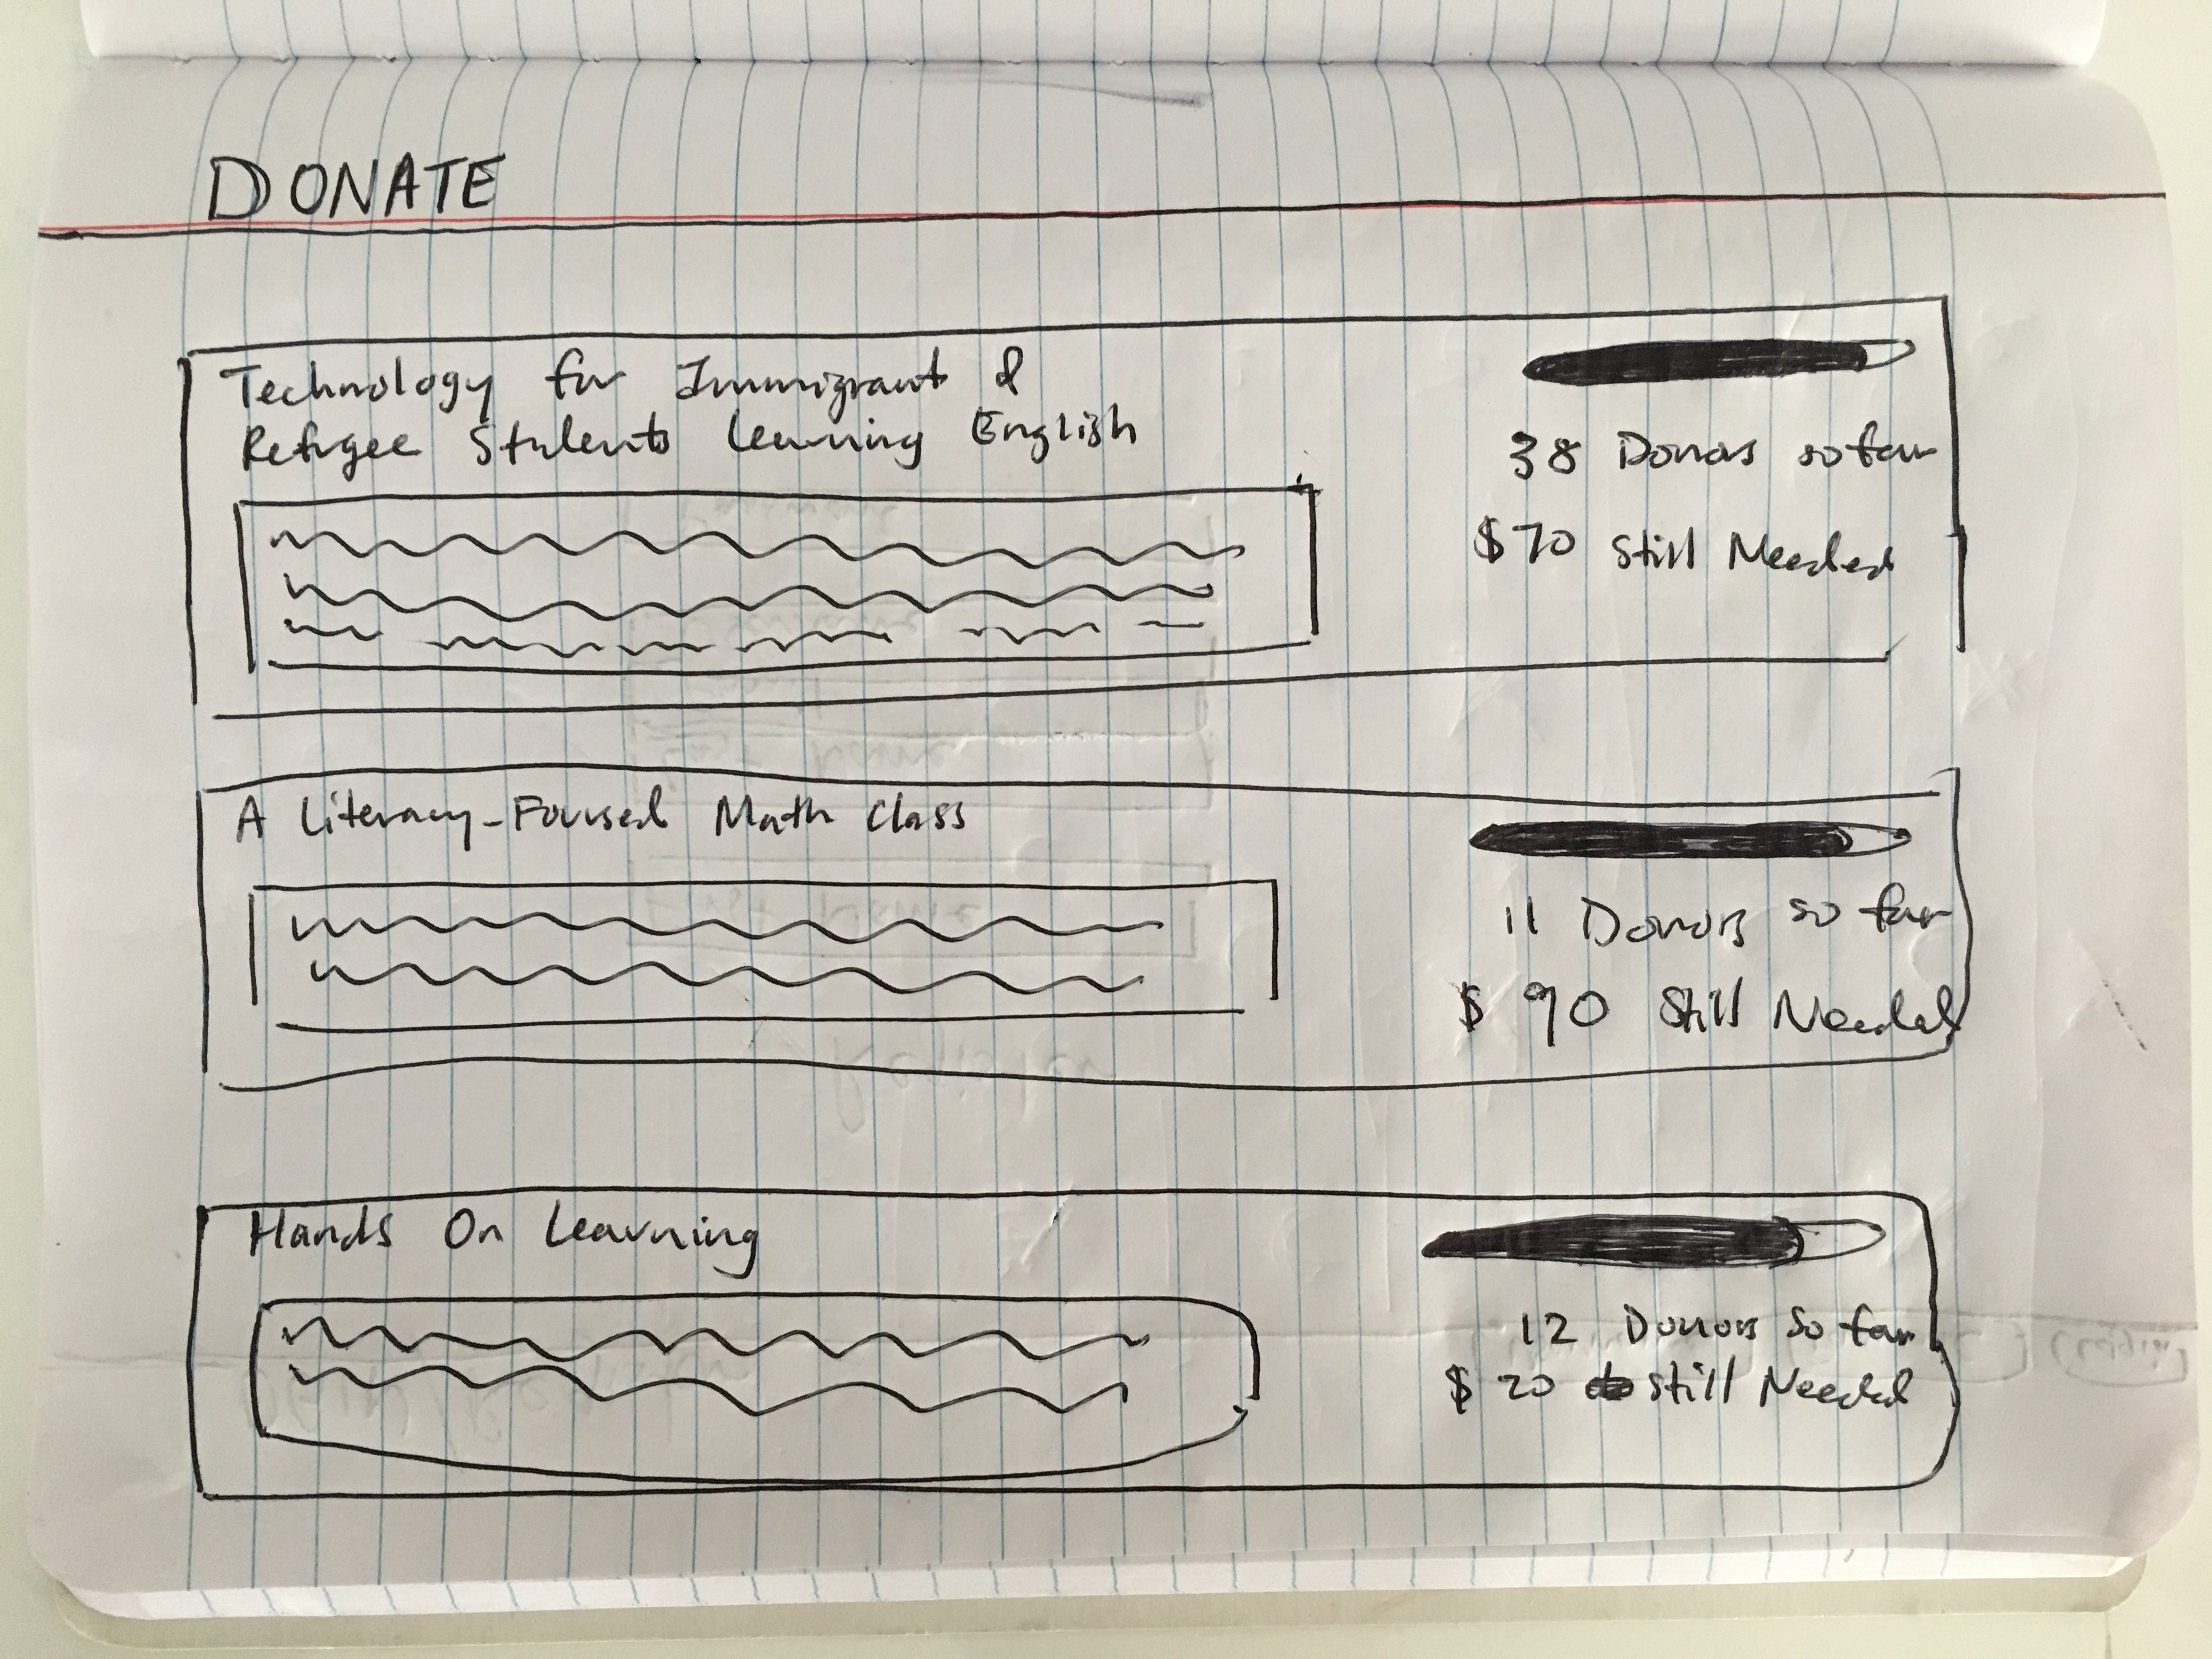 DONATE
Technology for Immigrant &
Refugee Students Learning English
38 Donors so far
$70 still Needed
A Literary-Focused Math Class
11 Donors so far
$90 Still Needed
Hands On Learning
12 Donors so far
$20 still Needed